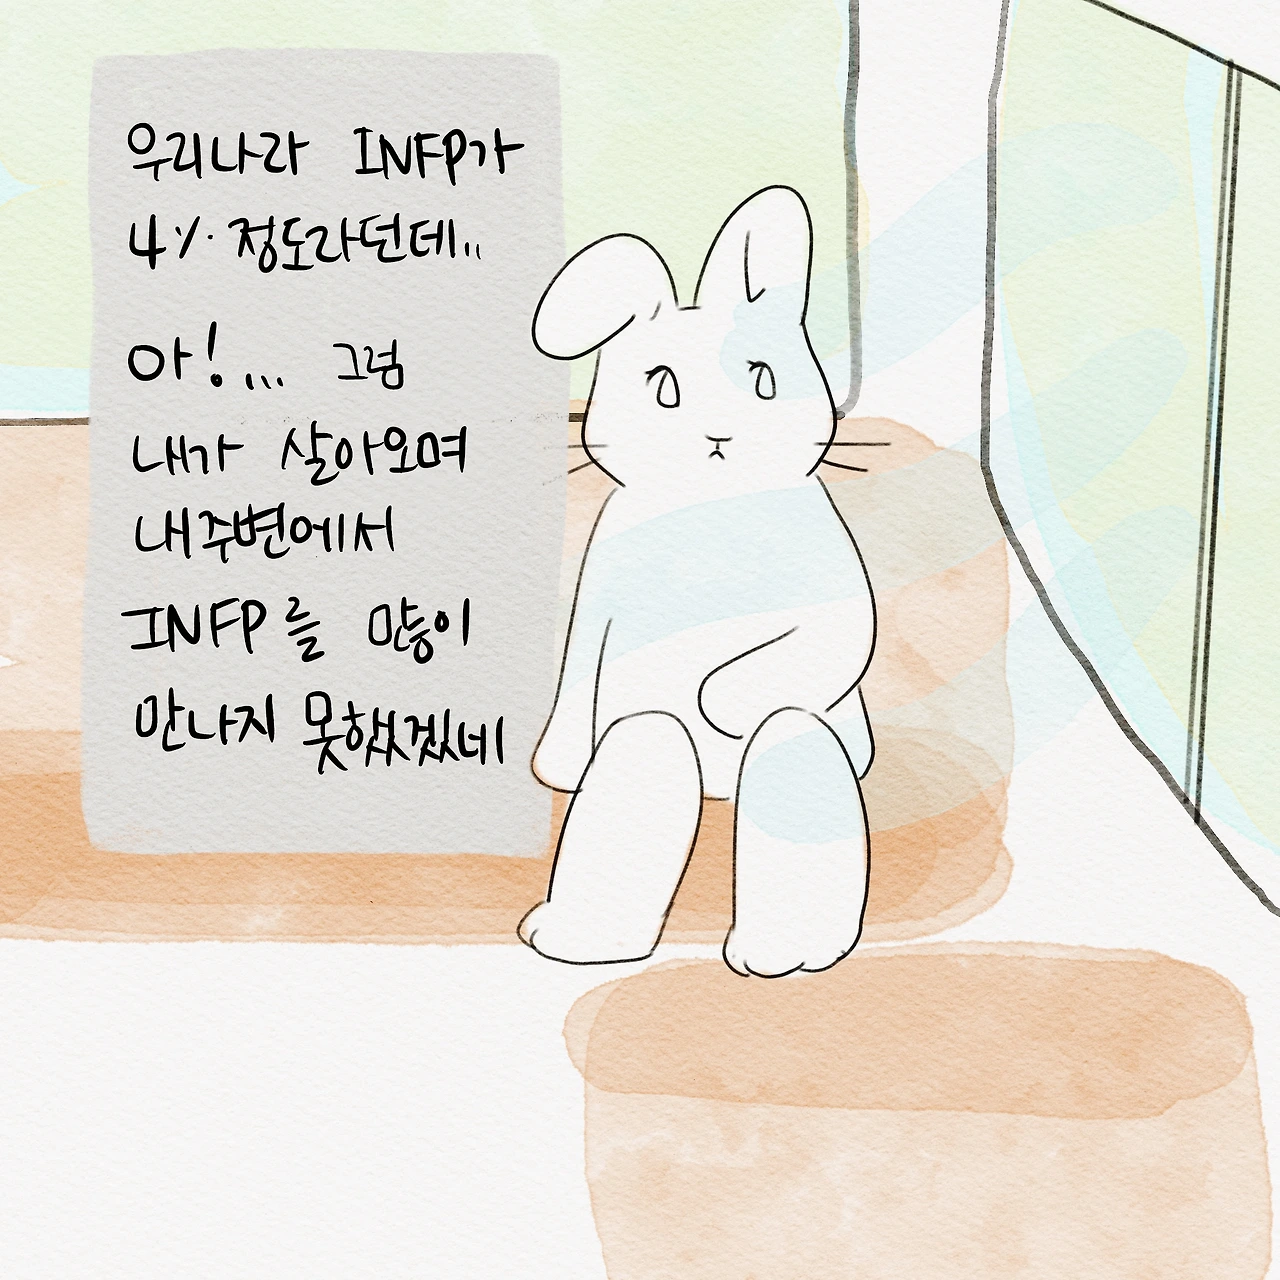 우리나라 INFP가
4% 정도라던데..
아!... 그럼
내가 살아오며
내주변에서
INFP를 많이
만나지 못했겠네